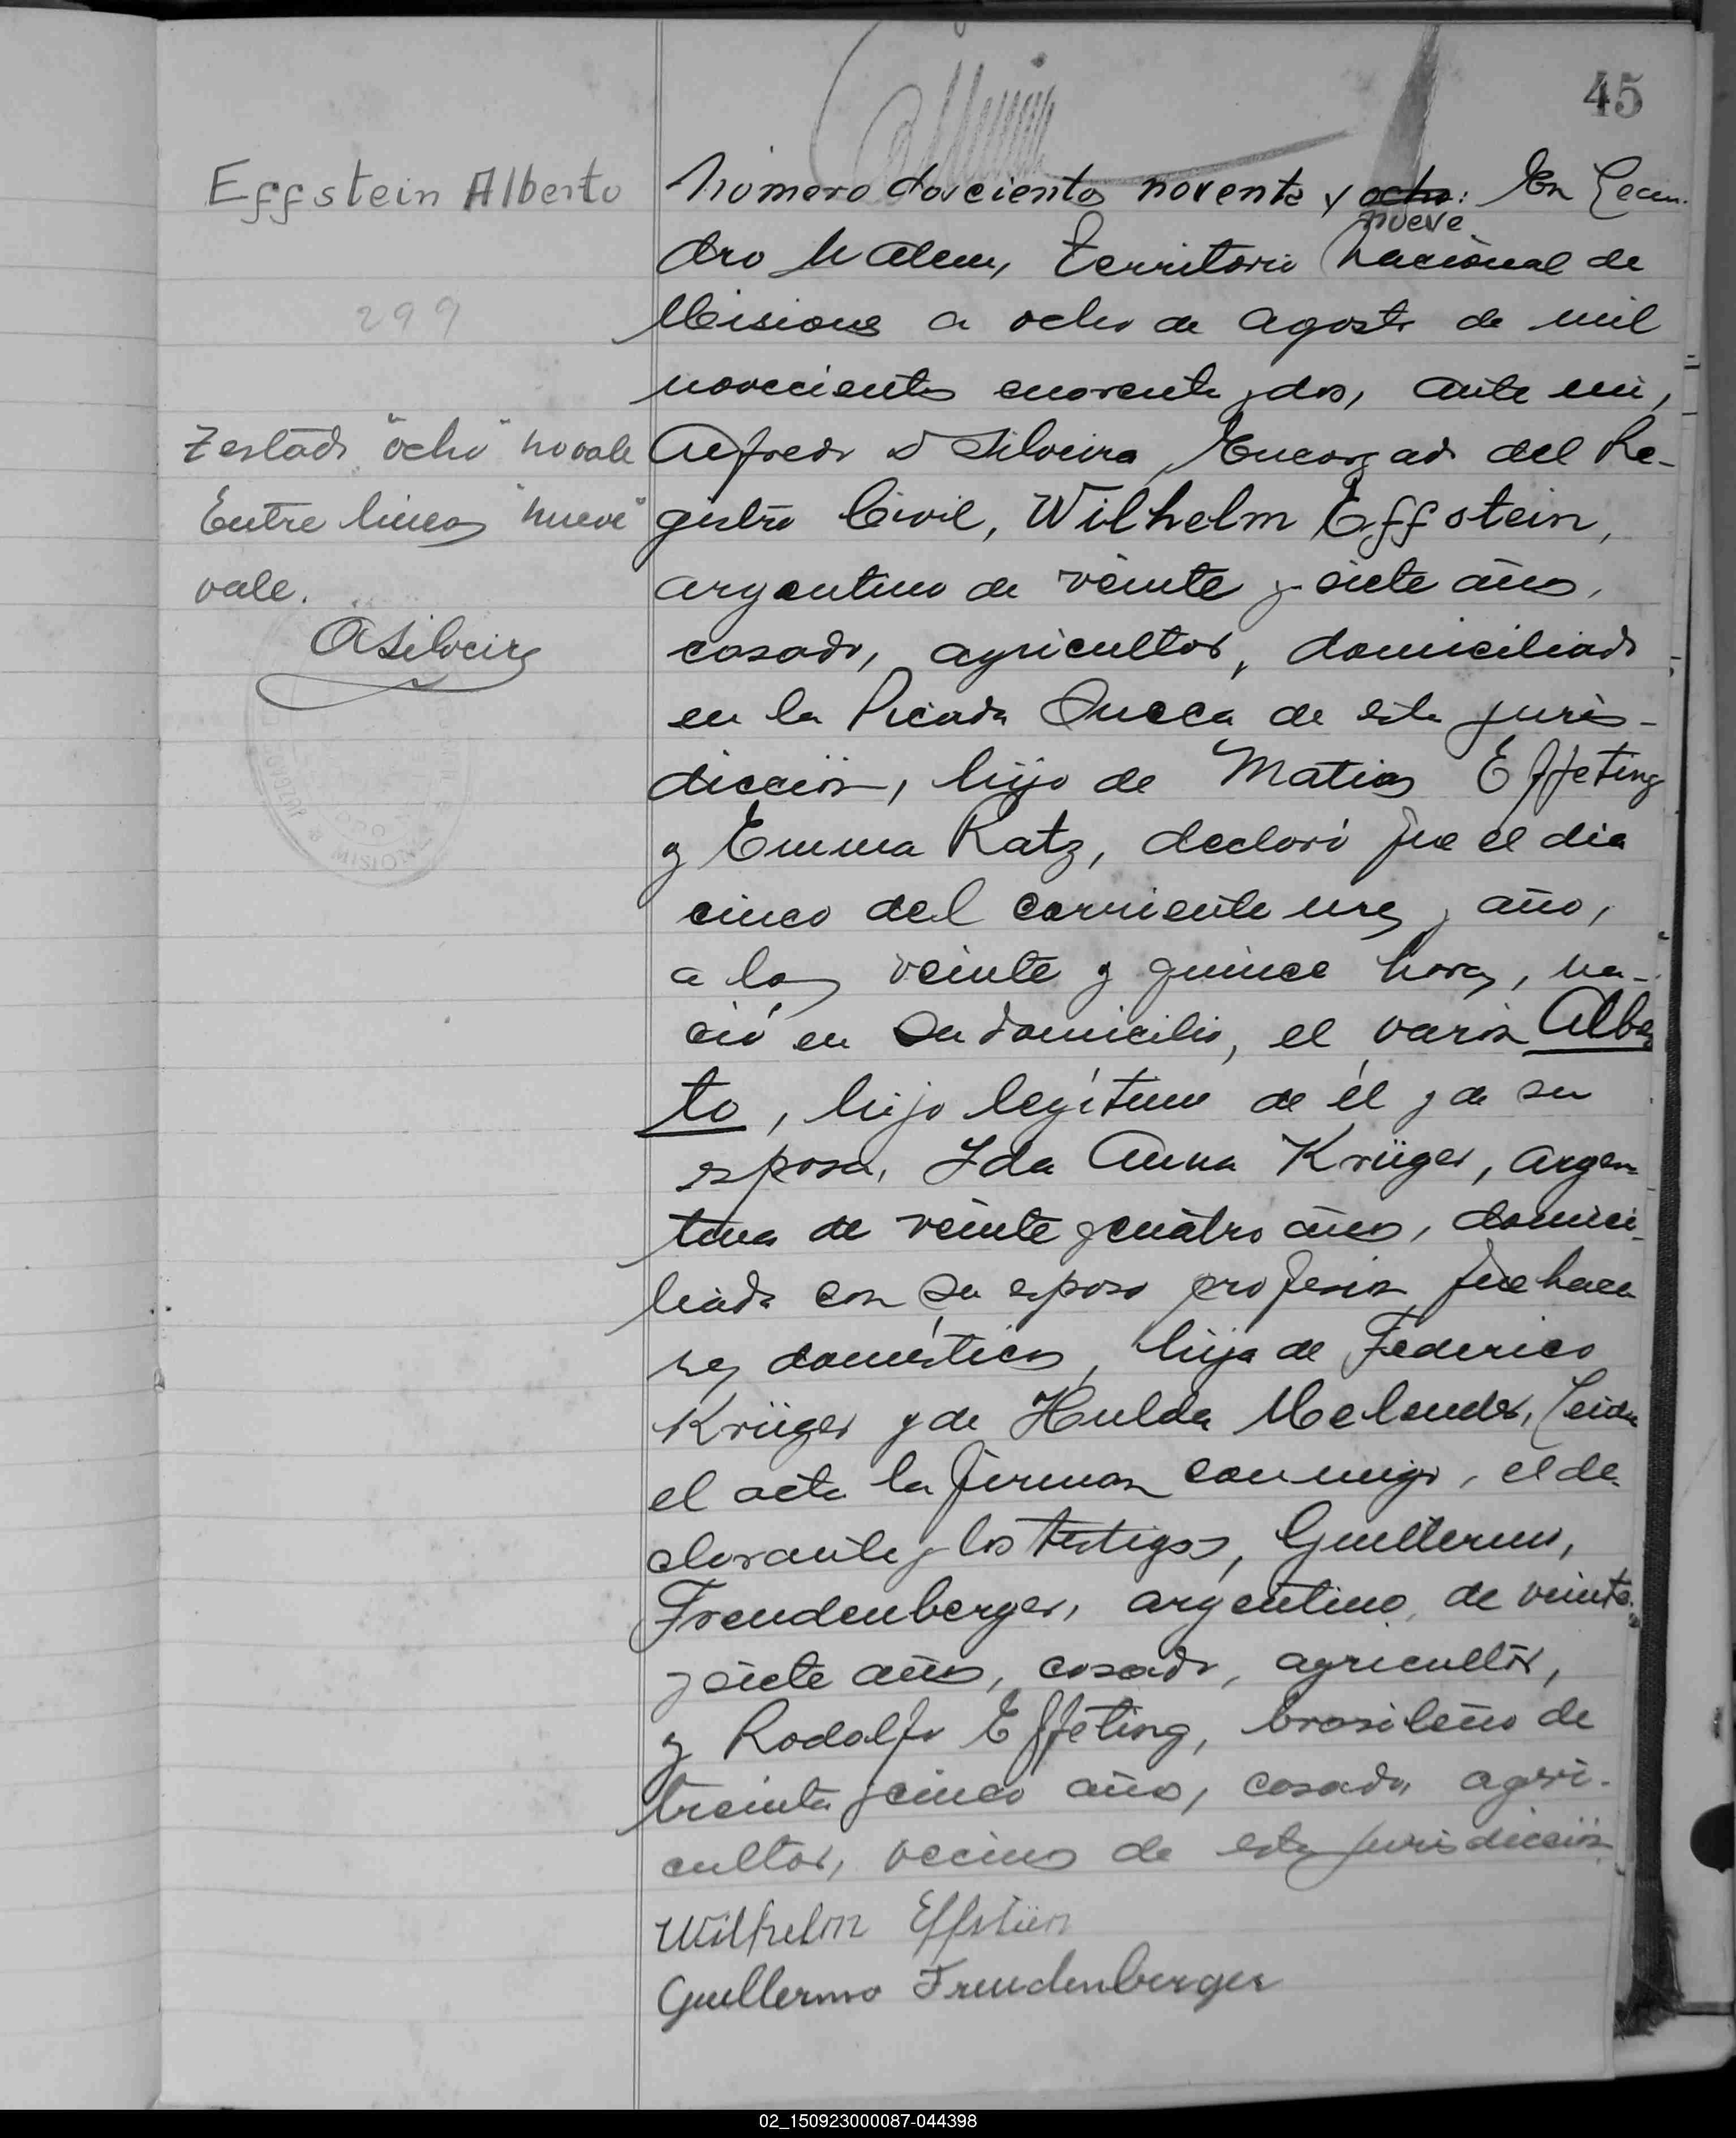 45
Effstein Alberto
299
Testado "ocho" no vale
Entre lineas "nueve"
vale.
ASilveira
MISIONES
Número doscientos noventa y ocho: En Lean-
nueve
dro N Alem, Territorio Nacional de
Misiones a ocho de agosto de mil
novecientos cuarenta y dos, ante mi,
Alfredo D Silveira, Encargado del Re-
gistro Civil, Wilhelm Effstein,
argentino de veinte y siete años,
casado, agricultor, domiciliado
en la Picada Sueca de esta juris-
dicción, hijo de Matias Effeting
y Emma Ratz, declaró que el dia
cinco del corriente mes y año,
a las veinte y quince horas, na-
ció en su domicilio, el varón Alber
to, hijo legítimo de él y de su
esposa, Ida Anna Krüger, argen-
tina de veinte y cuatro años, domici-
liada con su esposo profesión quehace
res domésticos, hija de Federico
Krüger y de Hulda Melander, Leida
el acta la firman conmigo, el de-
clarante y los testigos, Guillermo,
Freudenberger, argentino, de veinte
y siete años, casado, agricultor,
y Rodolfo Effeting, brasileño de
treinta y cinco años, casado, agri-
cultor, vecinos de esta jurisdicción
Wilhelm Effstein
Guillermo Freudenberger
02_150923000087-044398